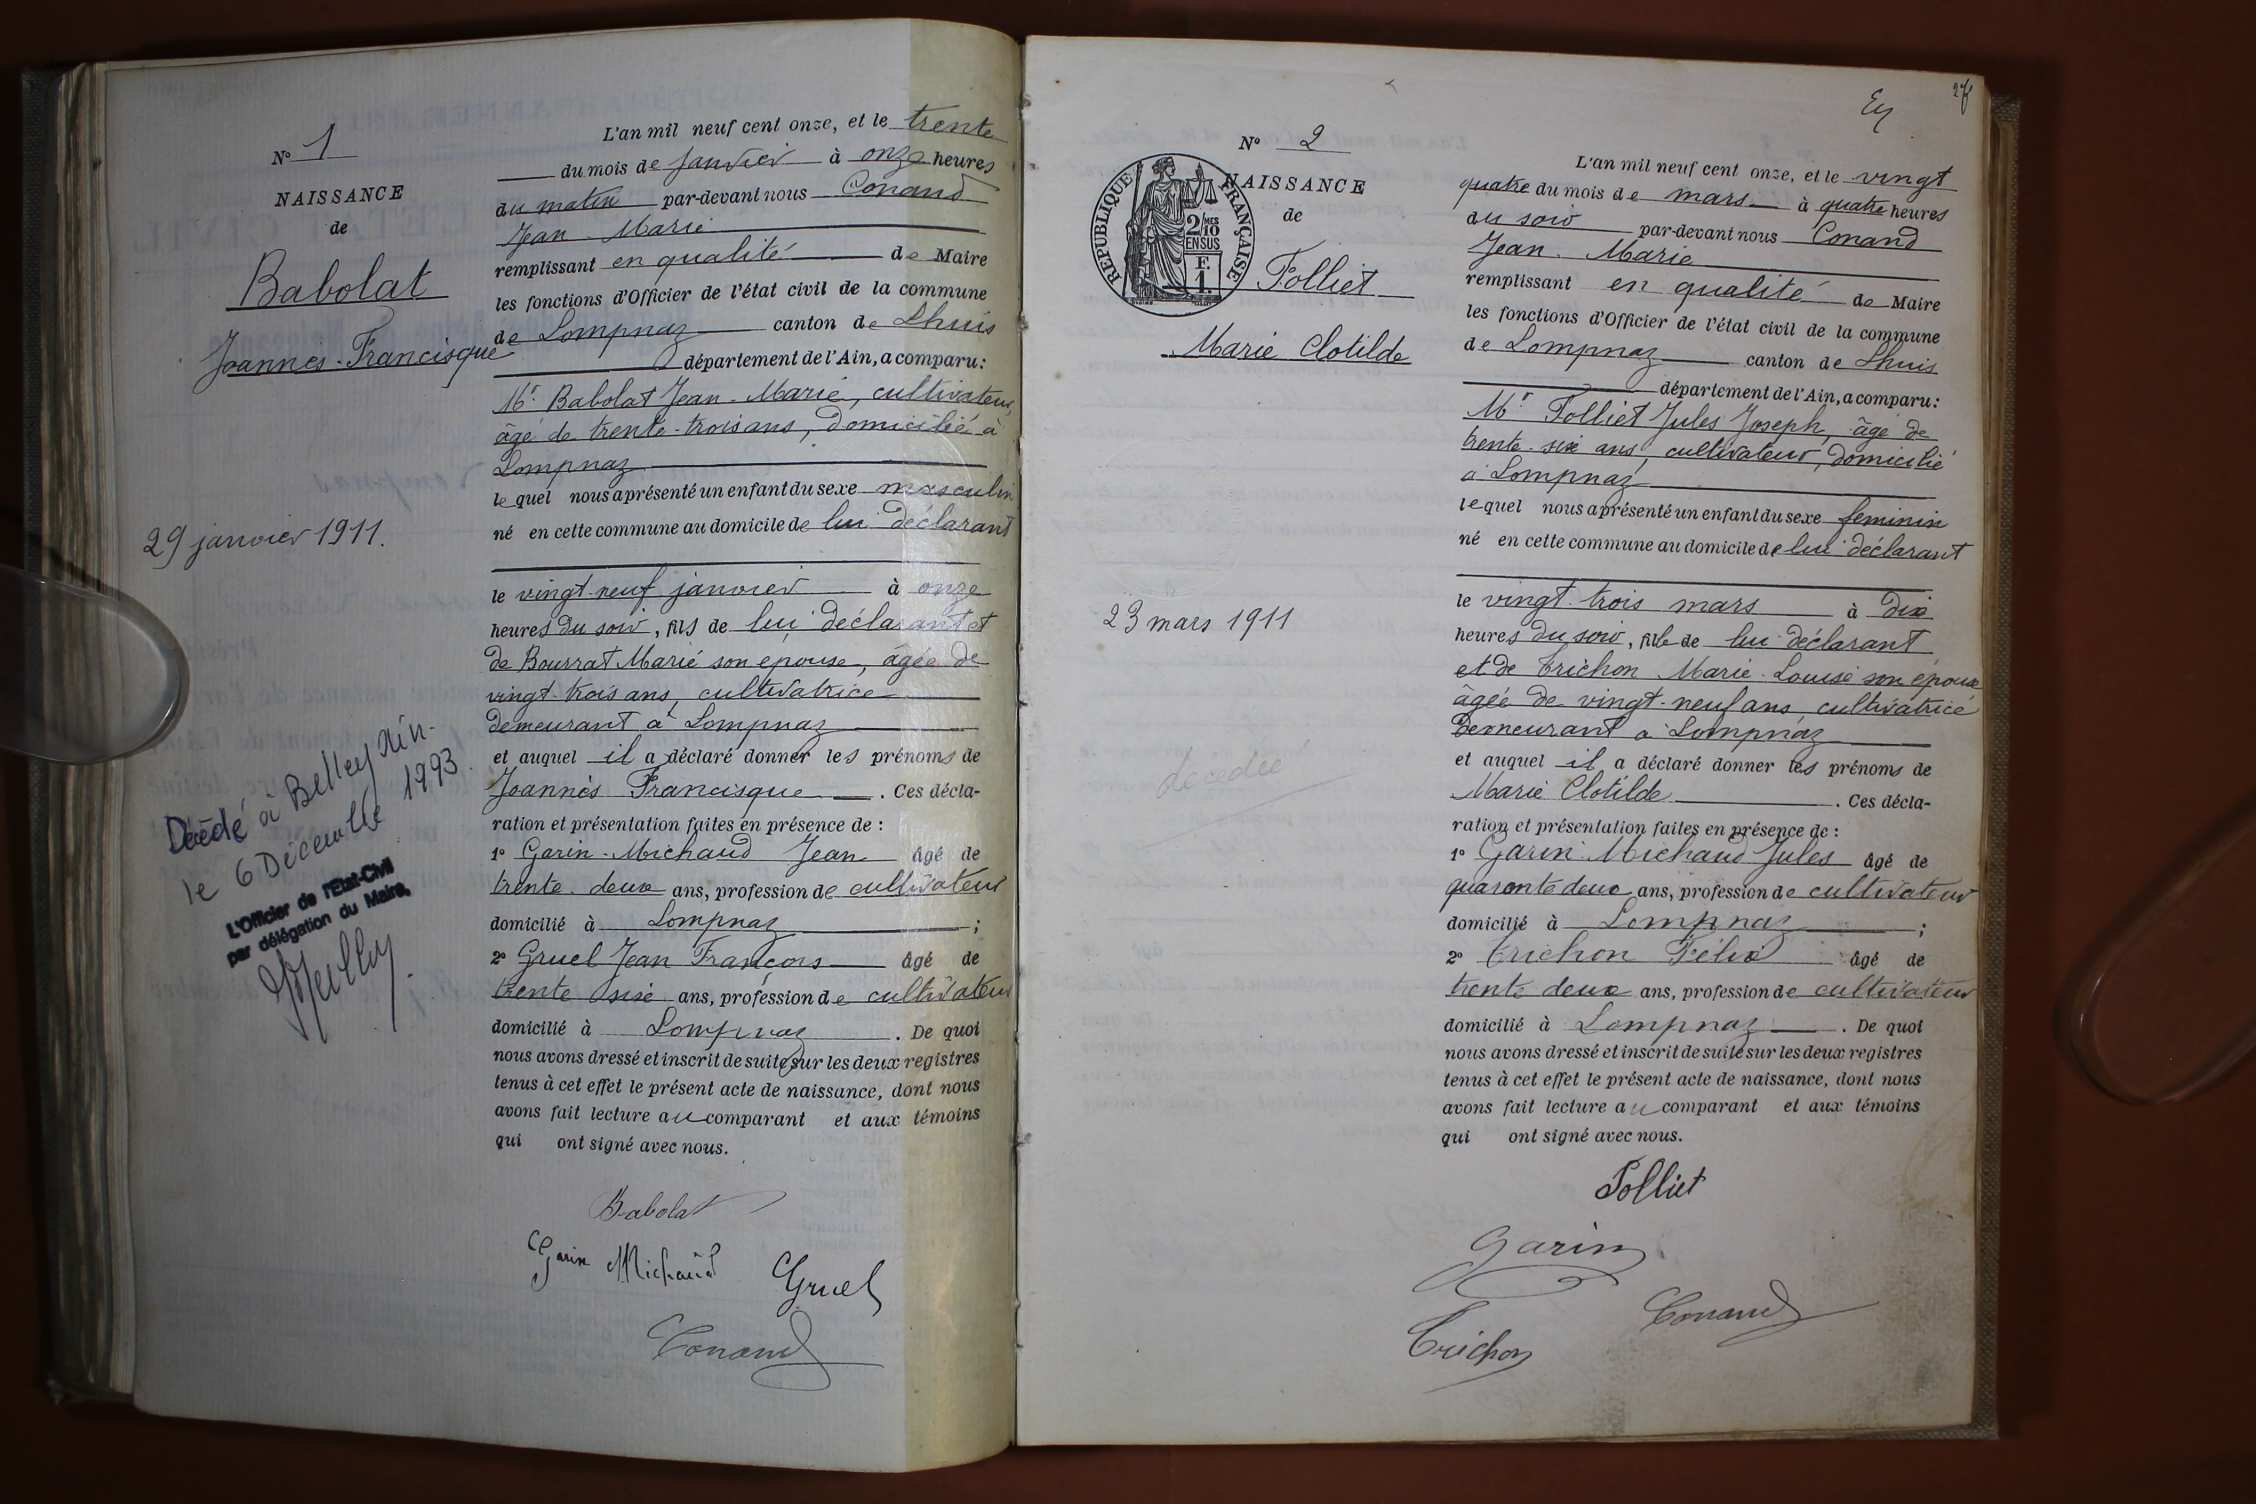 N° 1
NAISSANCE
de
Babolat
Joannès-Francisque
29 janvier 1911.
Décédé à Belley Ain
le 6 Décembre 1993.
L'Officier de l'Etat-Civil
par délégation du Maire,
L'an mil neuf cent onze, et le trente
du mois de janvier à onze heures
du matin par-devant nous Conand
Jean-Marie
remplissant en qualité de Maire
les fonctions d'Officier de l'état civil de la commune
de Lompnaz canton de Lhuis
département de l'Ain, a comparu:
Mr Babolat Jean-Marie, cultivateur,
âgé de trente-trois ans, domicilié à
Lompnaz
lequel nous a présenté un enfant du sexe masculin
né en cette commune au domicile de lui déclarant
le vingt-neuf janvier à onze
heures du soir, fils de lui déclarant et
de Bourrat Marie son épouse, âgée de
vingt-trois ans, cultivatrice
demeurant à Lompnaz
et auquel il a déclaré donner les prénoms de
Joannès Francisque. Ces décla-
ration et présentation faites en présence de :
1° Garin-Michaud Jean âgé de
trente-deux ans, profession de cultivateur
domicilié à Lompnaz ;
2° Gruel Jean François âgé de
trente six ans, profession de cultivateur
domicilié à Lompnaz. De quoi
nous avons dressé et inscrit de suite sur les deux registres
tenus à cet effet le présent acte de naissance, dont nous
avons fait lecture au comparant et aux témoins
qui ont signé avec nous.
Babolat
Garin Michaud Gruel
Conand
27
N° 2
NAISSANCE
de
REPUBLIQUE FRANÇAISE
2/10 MES
EN SUS
F.
1.
Folliet
Marie Clotilde
23 mars 1911
décédée
L'an mil neuf cent onze, et le vingt
quatre du mois de mars à quatre heures
du soir par-devant nous Conand
Jean-Marie
remplissant en qualité de Maire
les fonctions d'Officier de l'état civil de la commune
de Lompnaz canton de Lhuis
département de l'Ain, a comparu:
Mr Folliet Jules Joseph, âgé de
trente-six ans, cultivateur, domicilié
à Lompnaz
lequel nous a présenté un enfant du sexe feminin
né en cette commune au domicile de lui déclarant
le vingt-trois mars à dix
heures du soir, fille de lui déclarant
et de Trichon Marie-Louise son épouse
âgée de vingt-neuf ans, cultivatrice
demeurant à Lompnaz
et auquel il a déclaré donner les prénoms de
Marie Clotilde. Ces décla-
ration et présentation faites en présence de :
1° Garin-Michaud Jules âgé de
quarante deux ans, profession de cultivateur
domicilié à Lompnaz ;
2° Trichon Félix âgé de
trente deux ans, profession de cultivateur
domicilié à Lompnaz. De quoi
nous avons dressé et inscrit de suite sur les deux registres
tenus à cet effet le présent acte de naissance, dont nous
avons fait lecture au comparant et aux témoins
qui ont signé avec nous.
Folliet
Garin
Conand
Trichon